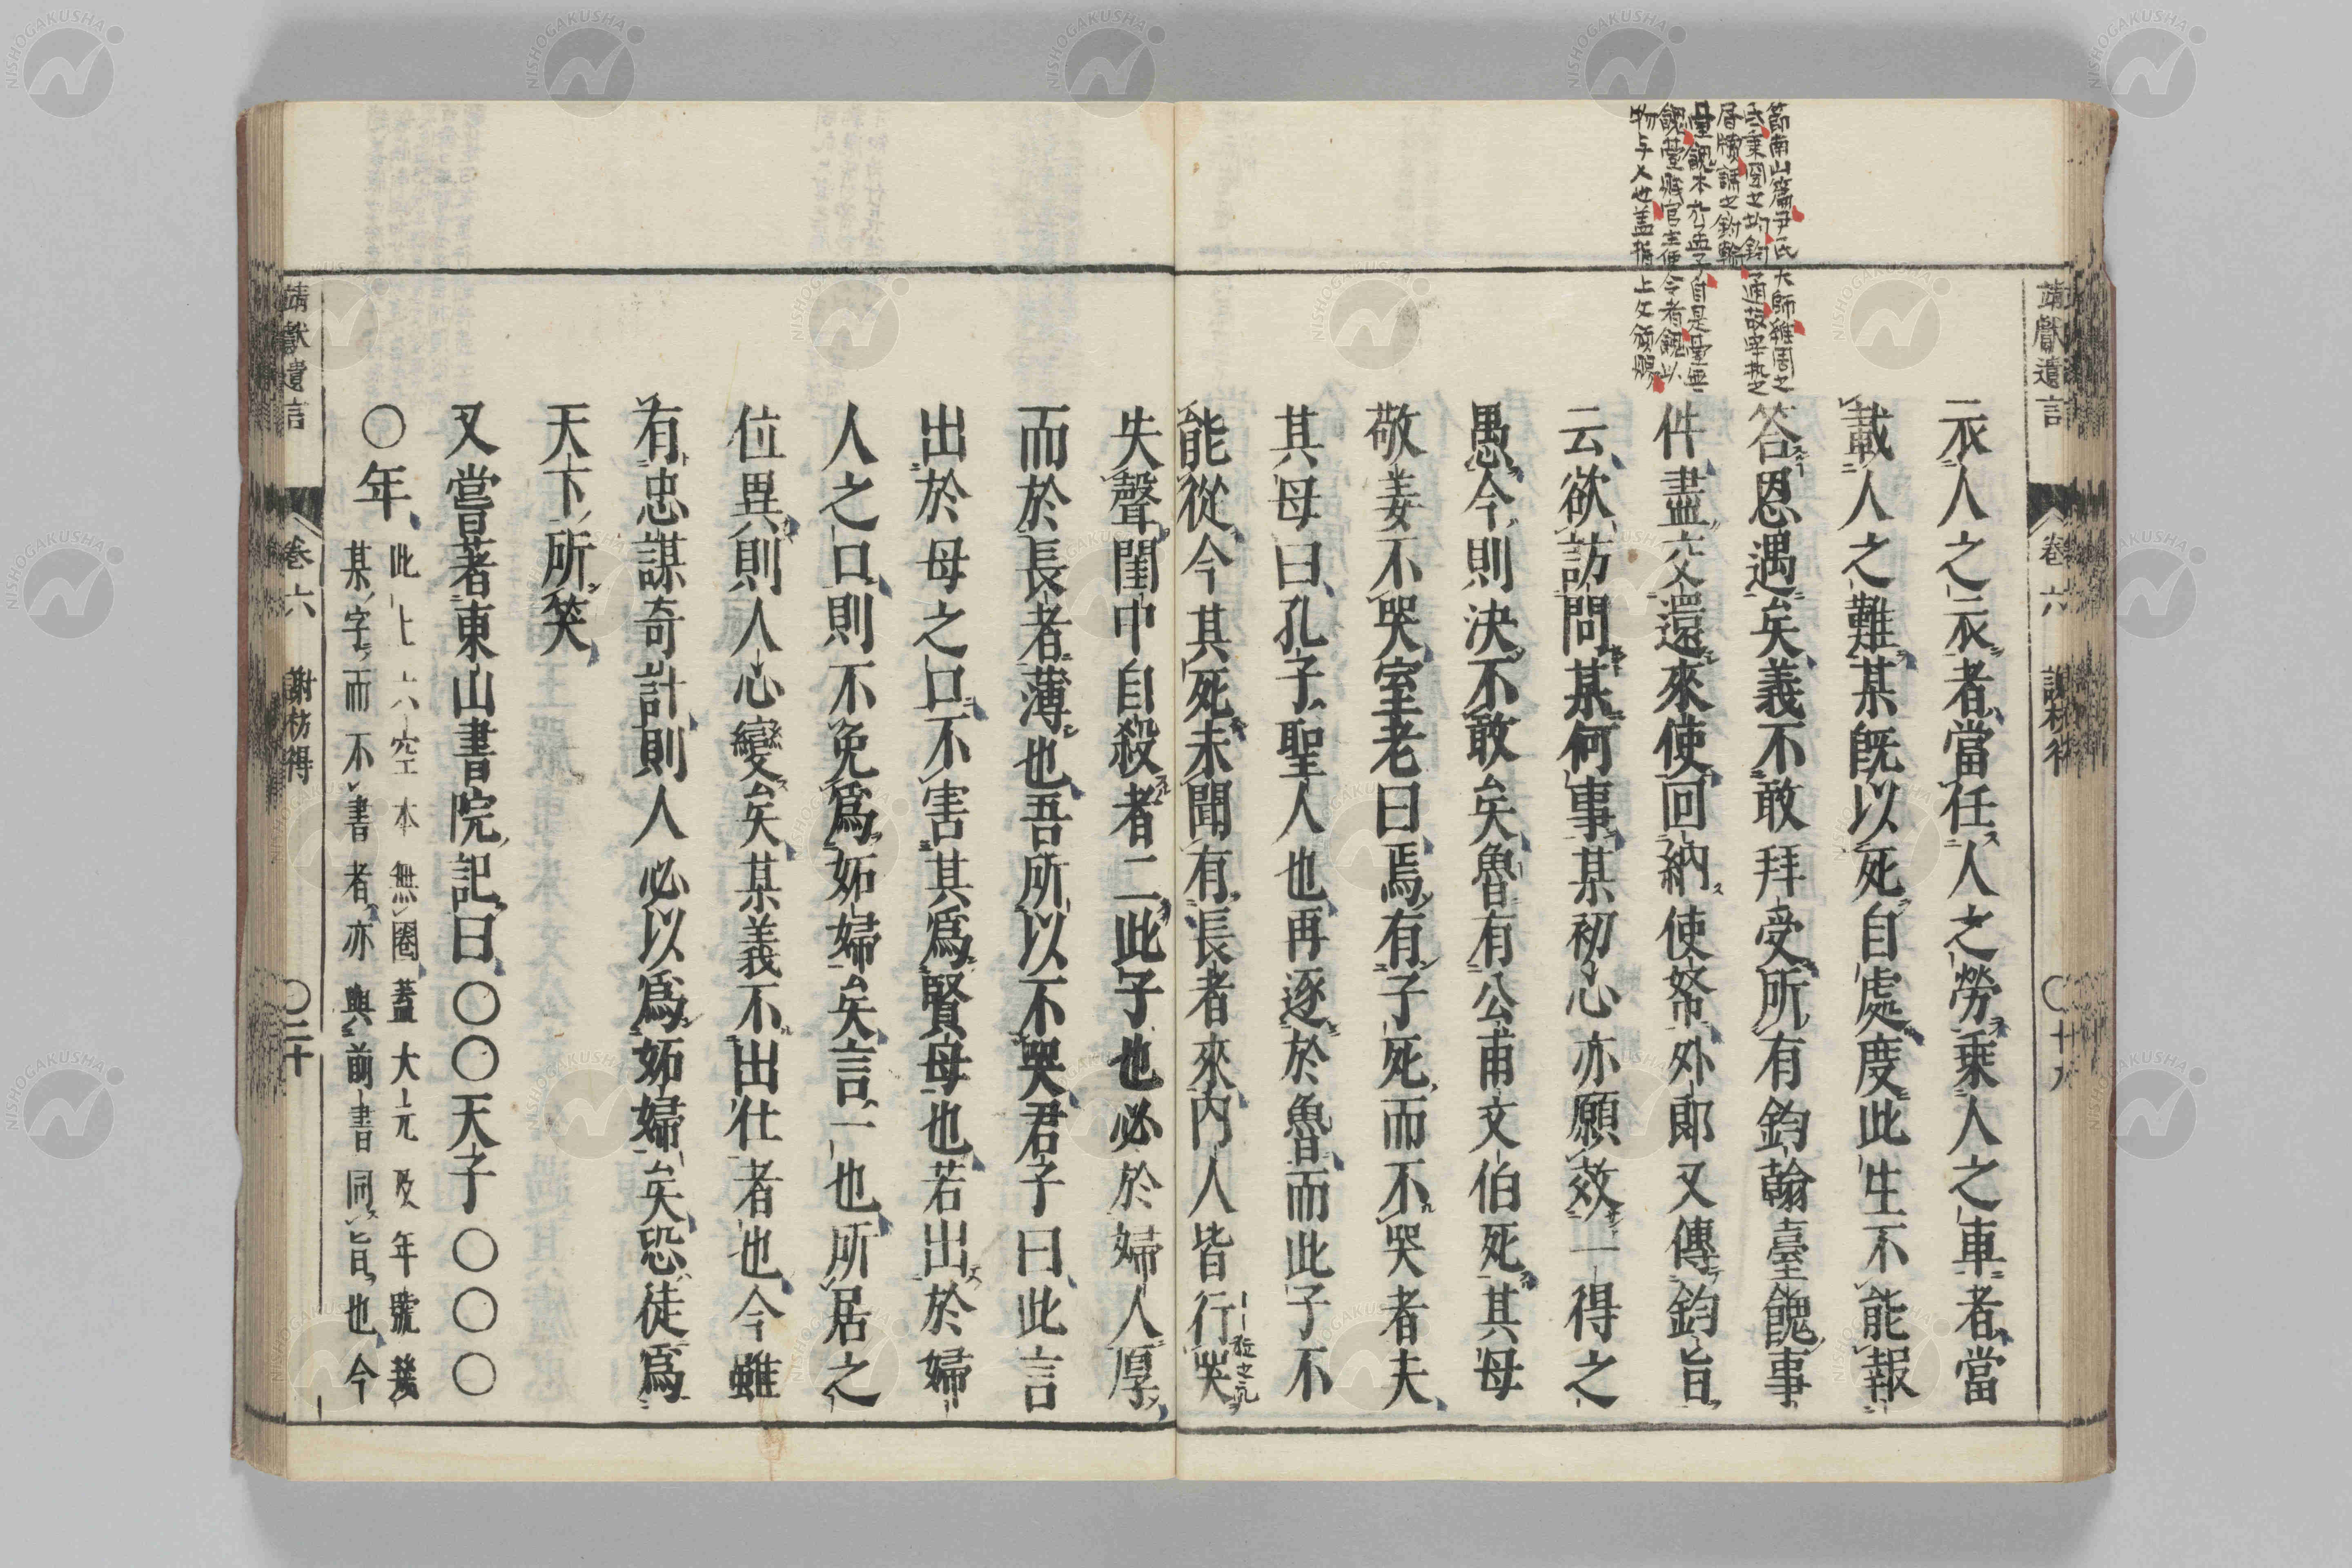 靖獻遺言 卷六 謝枋得 〇十九
節南山篇尹氏大師維周之
氏秉國之均鈞通故宰執之
臺餽本出孟子自是臺無
餽臺賤官主使令者餽以
物与人也盖指上文頒賜
衣人之衣者當任人之勞乘人之車者當
載人之難某既以死自處度此生不能報
答恩遇矣義不敢拜受所有鈞翰臺餽事
件盡交還來使回納使帑外郎又傳鈞旨
云欲訪問某何事某初心亦願效一得之
愚今則決不敢矣魯有公甫文伯死其母
敬姜不哭室老曰焉有子死而不哭者夫
其母曰孔子聖人也再逐於魯而此子不
能從今其死未聞有長者來內人皆行哭
失聲閨中自殺者二此子也必於婦人厚
而於長者薄也吾所以不哭君子曰此言
出於母之口不害其爲賢母也若出於婦
人之口則不免爲妬婦矣言一也所居之
位異則人心變矣某義不出仕者也今雖
有忠謀奇計則人必以爲妬婦矣恐徒爲
天下所笑
又嘗著東山書院記曰〇〇天子〇〇〇
〇年此上六空本無圈蓋大元及年號幾
某字而不書者亦與前書同旨也今
靖獻遺言 卷六 謝枋得 〇二十
NISHOGAKUSHA